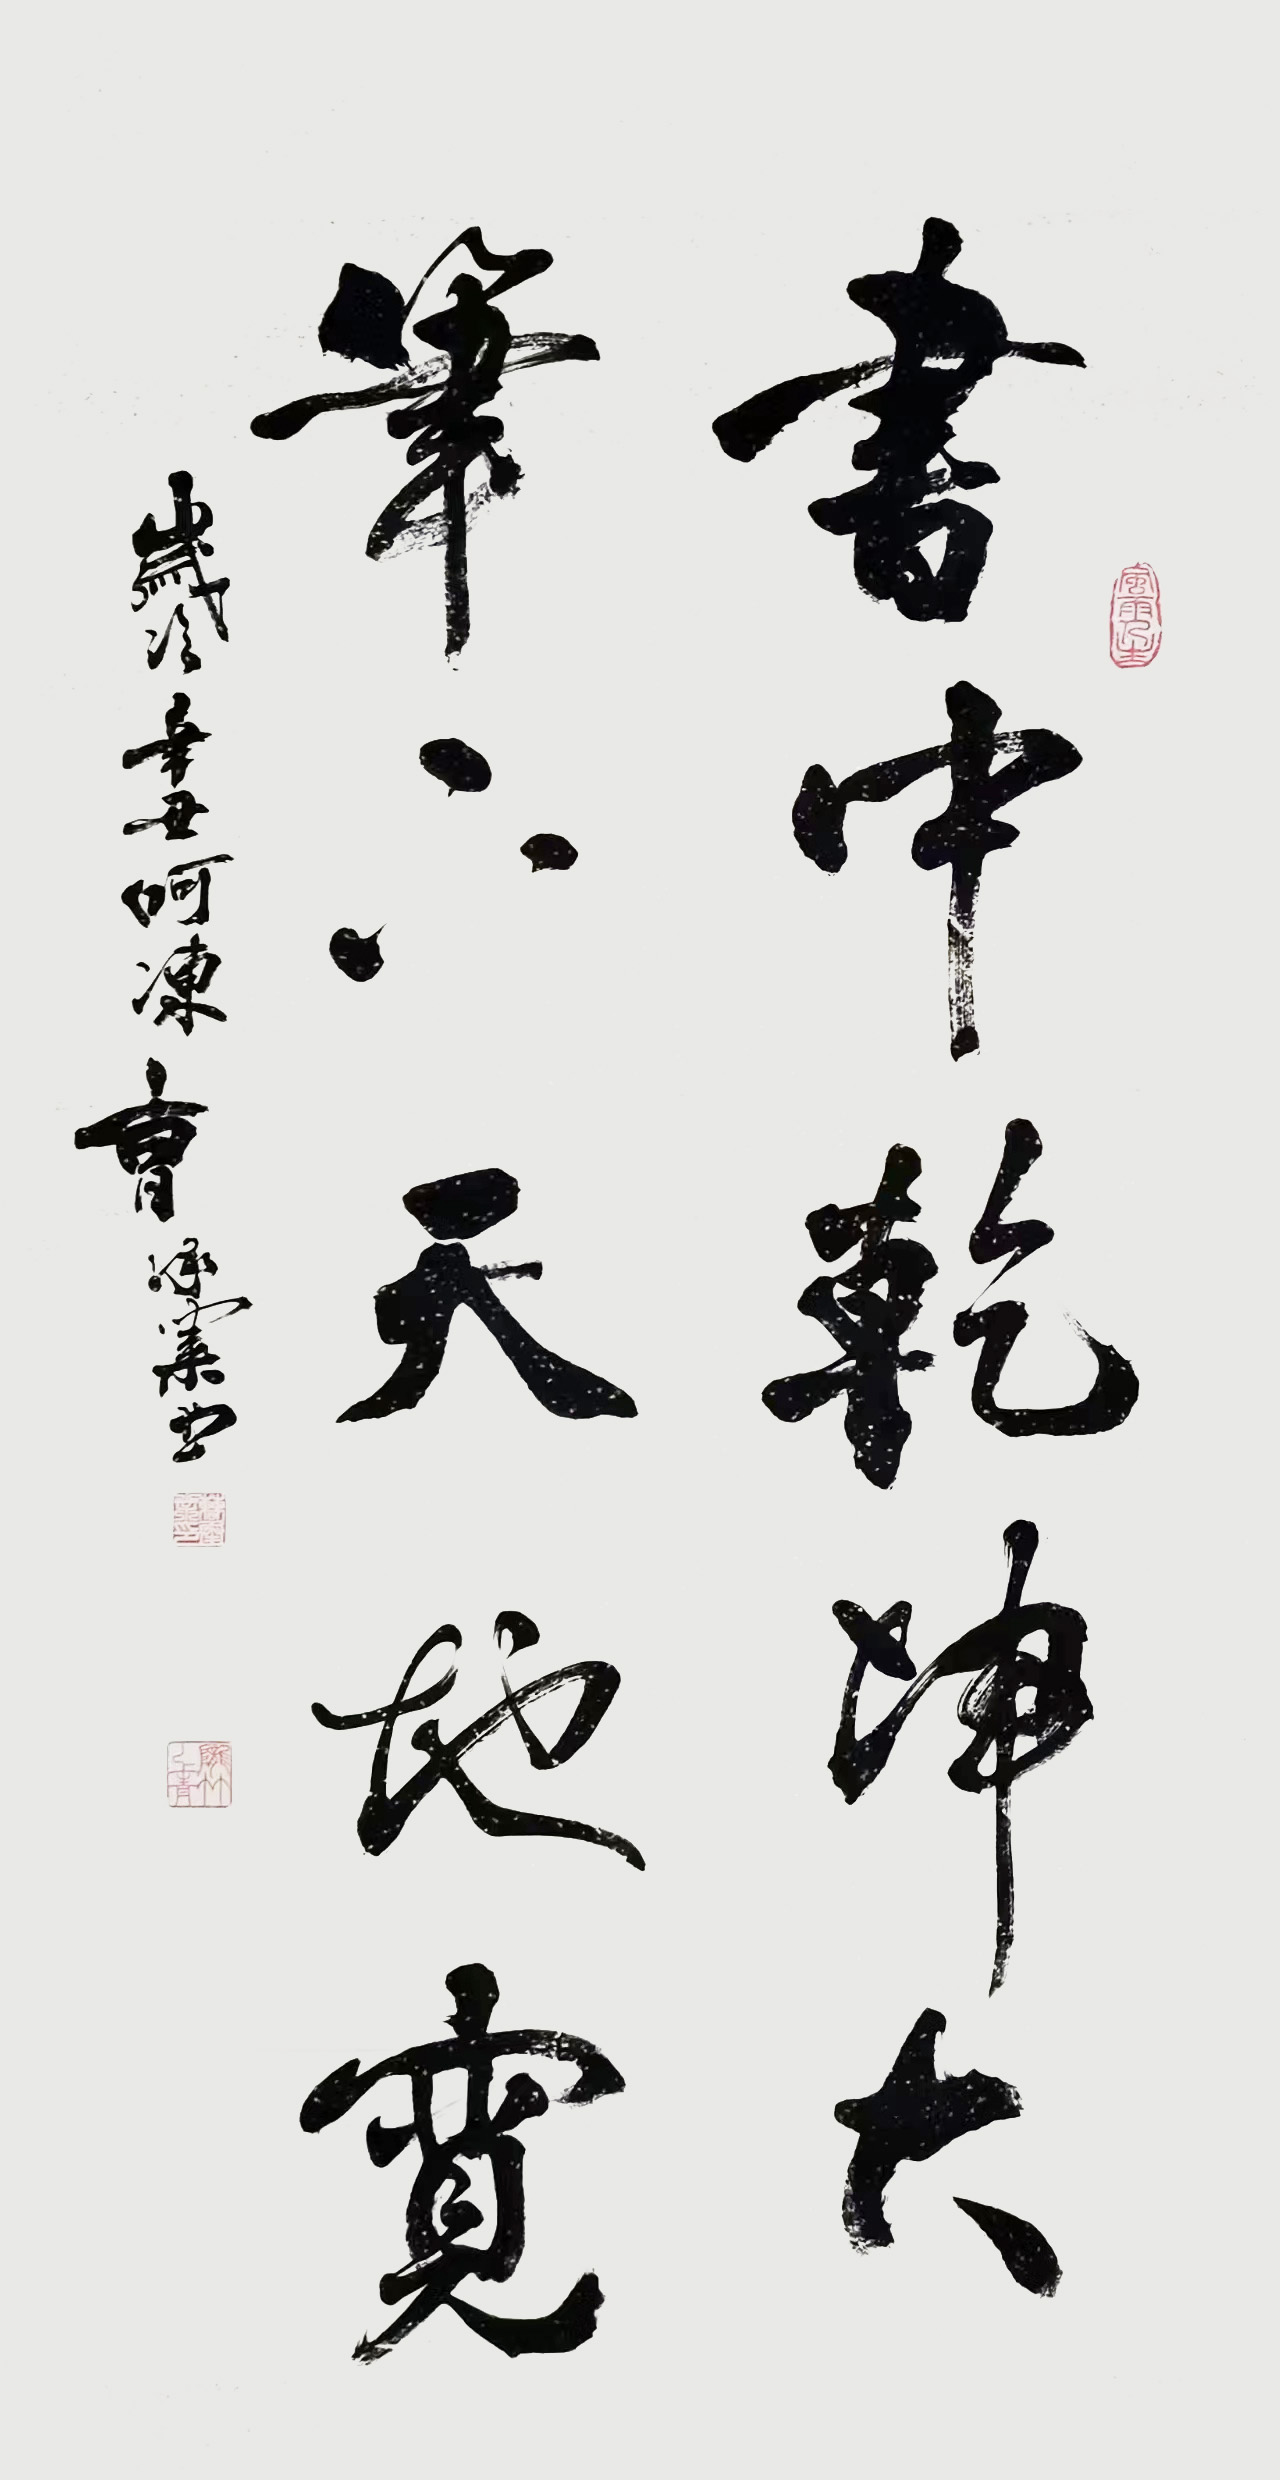 書中乾坤大
筆下天地寬
歲次辛丑呵凍曹業书